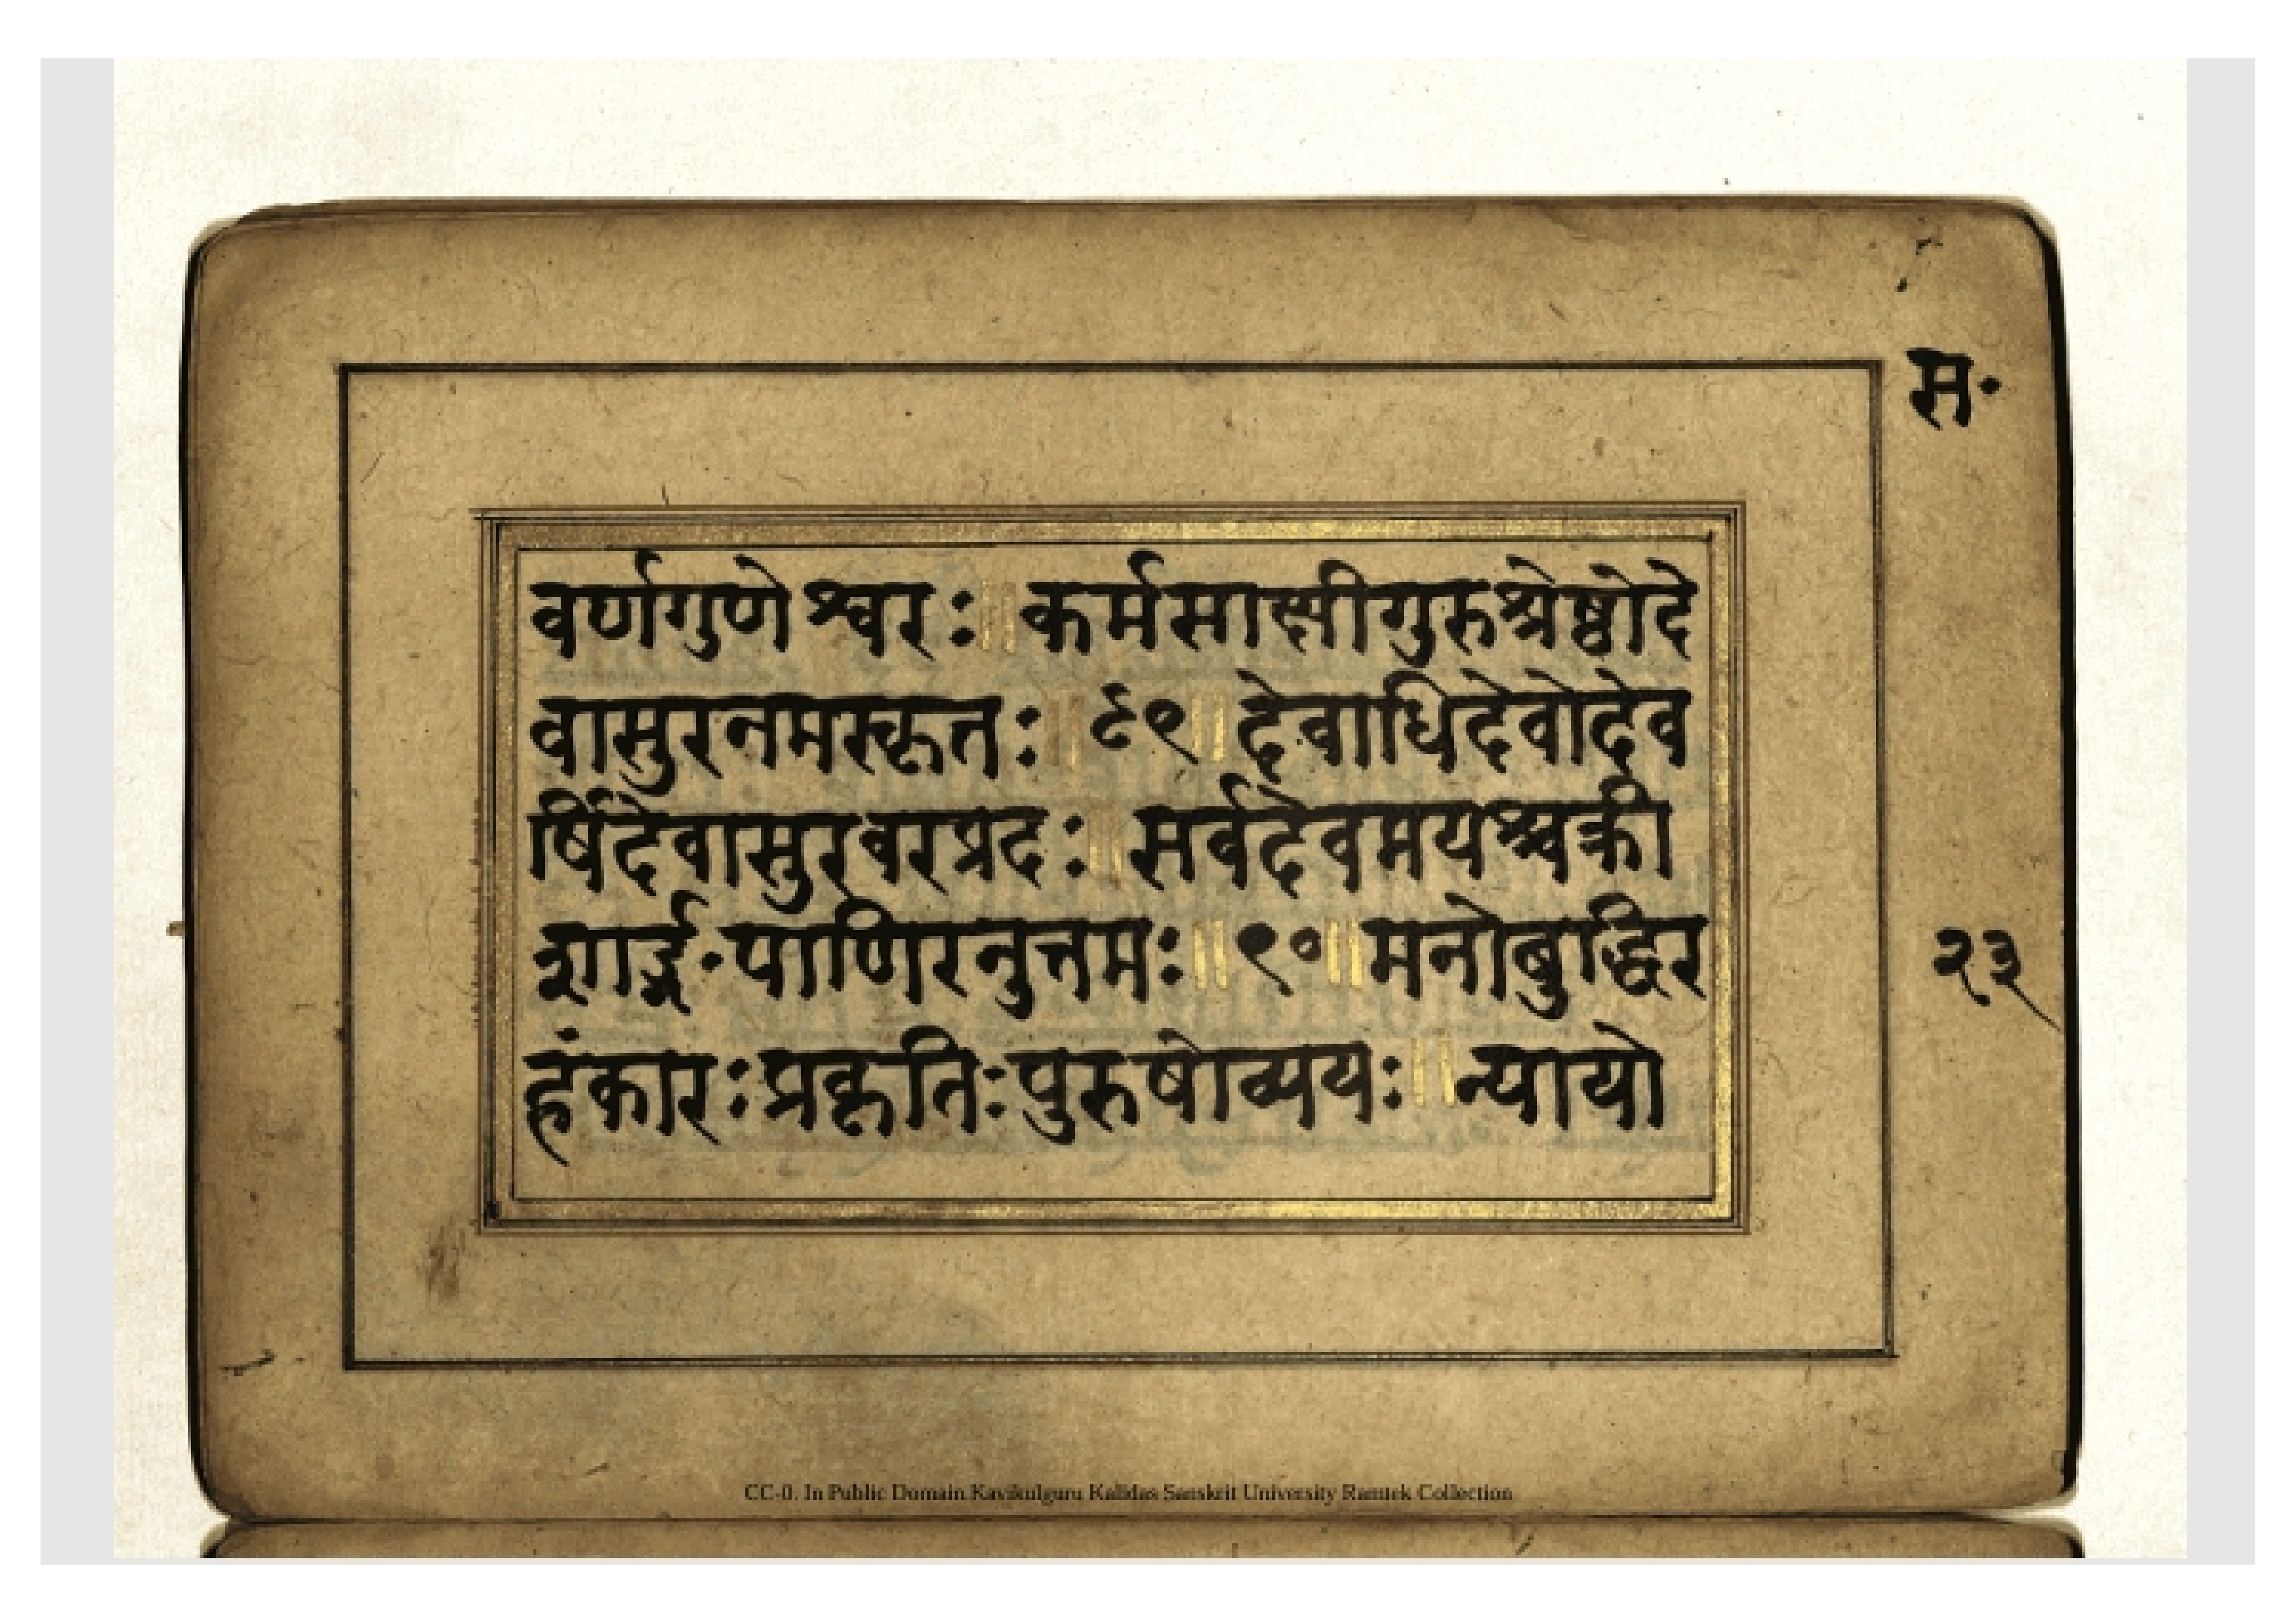 स॰
वर्णगुणेश्वरः ॥ कर्मसाक्षीगुरुश्रेष्ठोदे
वासुरनमस्कृतः ॥ ८९ ॥ देवाधिदेवोदेव
र्षिदेवासुरवरप्रदः ॥ सर्वदेवमयश्चक्री
शार्ङ्गपाणिरनुत्तमः ॥ ९० ॥ मनोबुद्धिर
हंकारःप्रकृतिःपुरुषोव्ययः ॥ न्यायो
२३
CC-0. In Public Domain Kavikulguru Kalidas Sanskrit University Ramtek Collection